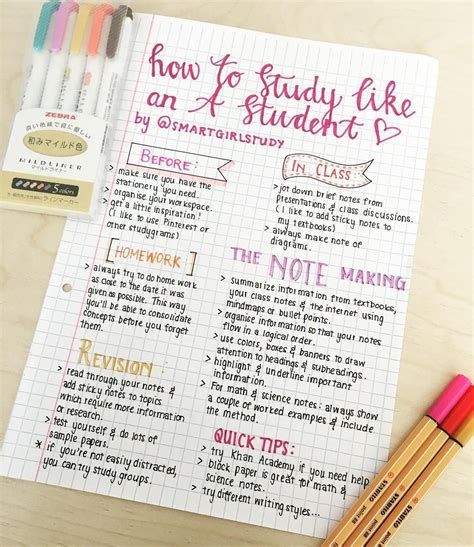 how to study like
an A student
by @SMARTGIRLSTUDY
BEFORE:
> make sure you have the
stationery you need.
> organise your workspace.
> get a little inspiration!
(I like to use Pinterest or
other studygrams)
IN CLASS
> jot down brief notes from
presentations & class discussions.
(I like to add sticky notes to
my textbooks)
> always make note of
diagrams.
HOMEWORK
> always try to do home work
as close to the date it was
given as possible. This way
you'll be able to consolidate
concepts before you forget
them.
THE NOTE MAKING
> summarize information from textbooks,
your class notes & the internet using
mindmaps or bullet points.
> organise information so that your notes
flow in a logical order.
> use colors, boxes & banners to draw
attention to headings & subheadings.
> highlight & underline important
information.
> For math & science notes: always show
a couple of worked examples & include
the method.
REVISION:
> read through your notes &
add sticky notes to topics
which require more information
or research.
> test yourself & do lots of
sample papers.
* if you're not easily distracted,
you can try study groups.
QUICK TIPS:
> try Khan Academy if you need help
> block paper is great for math &
science notes.
> try different writing styles...
ZEBRA
和みマイルド色
MILDLINER
マイルドライナー
5 colors
STABILO
point 88
STABILO
point 88